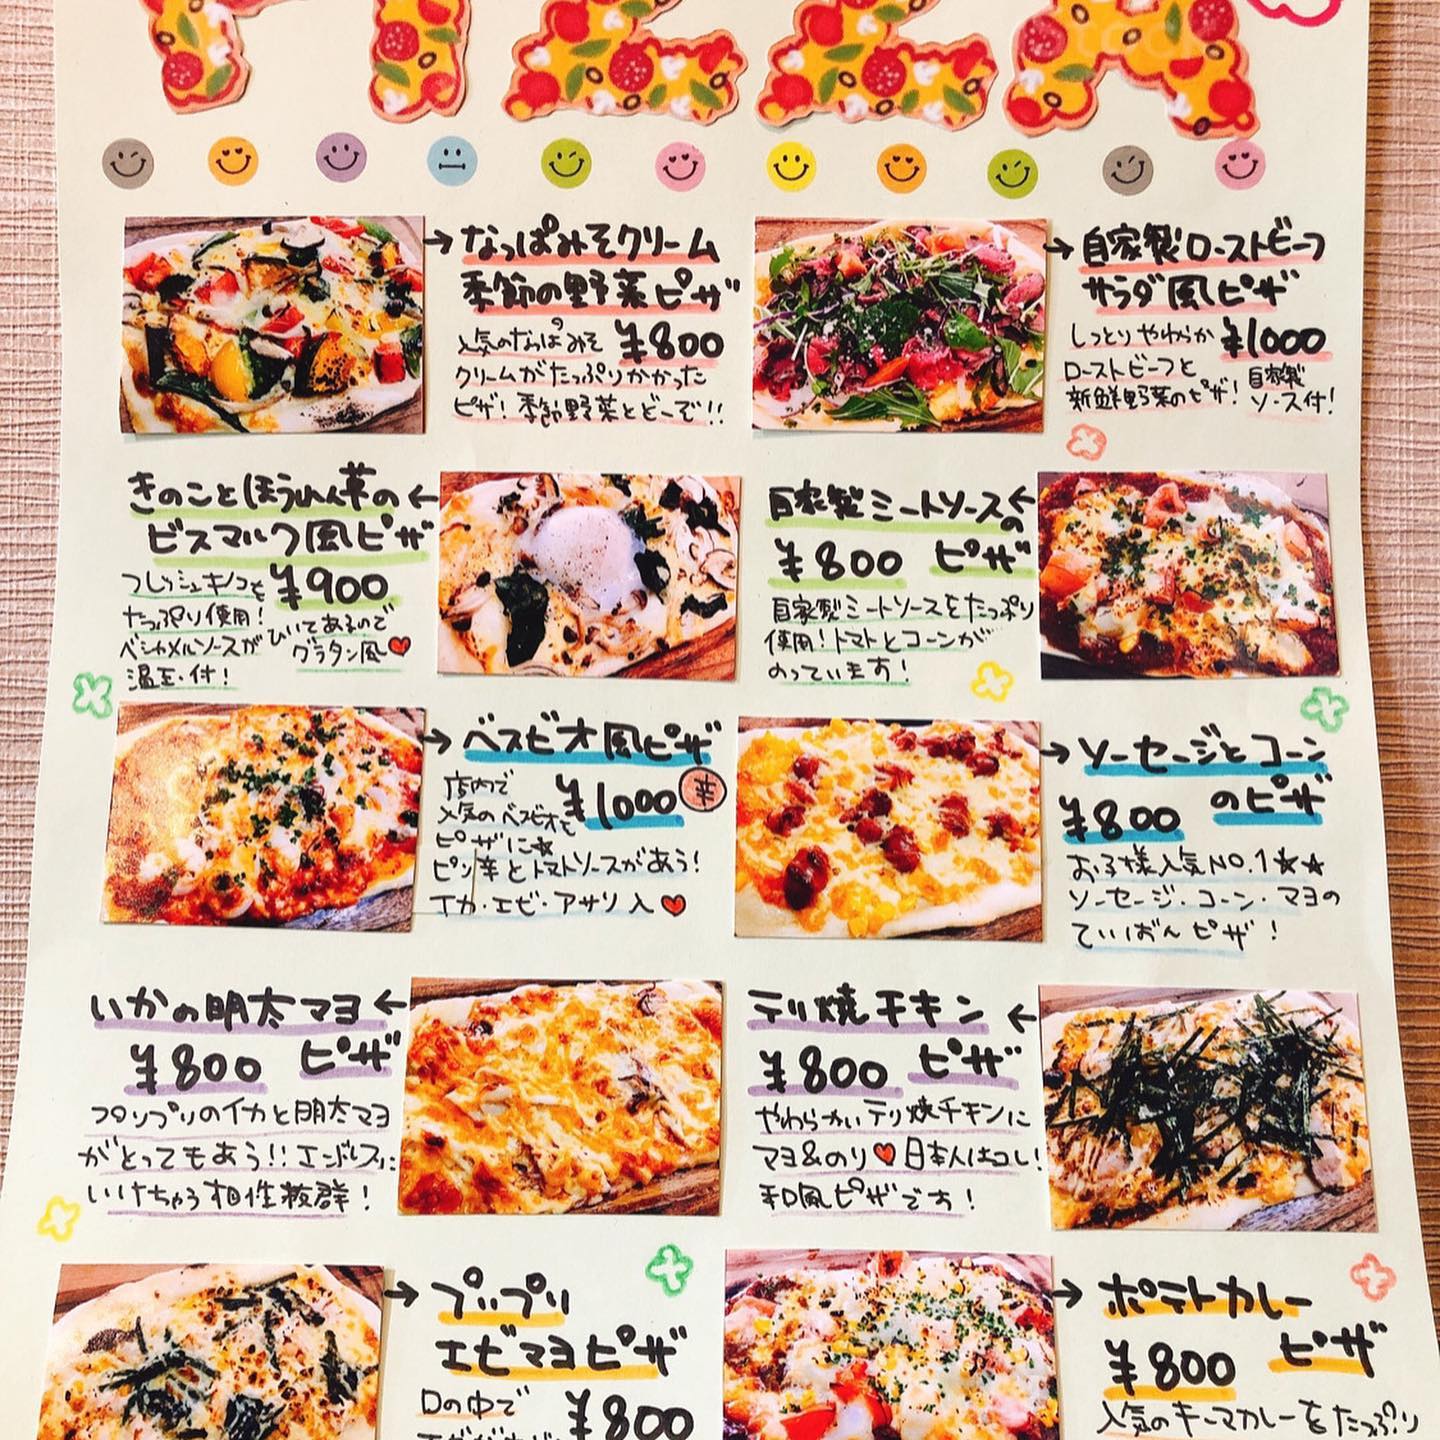 PIZZA
なっぱみそクリーム
季節の野菜ピザ
人気のなっぱみそ ¥800
クリームがたっぷりかかった
ピザ!季節野菜とどーぞ!!
自家製ローストビーフ
サラダ風ピザ
しっとりやわらか ¥1000
ローストビーフと
新鮮野菜のピザ!
自家製
ソース付!
きのことほうれん草の
ビスマルク風ピザ
フレッシュキノコを ¥900
たっぷり使用!
ベシャメルソースがひいてあるので
グラタン風
温玉付!
自家製ミートソースの
¥800 ピザ
自家製ミートソースをたっぷり
使用!トマトとコーンが
のっています!
ベスビオ風ピザ
店内で ¥1000 辛
人気のベスビオを
ピザに★
ピリ辛とトマトソースがあう!
イカ・エビ・アサリ入♥
ソーセージとコーン
のピザ
¥800
お子様人気NO.1★★
ソーセージ・コーン・マヨの
ていばんピザ!
いかの明太マヨ
¥800 ピザ
プリプリのイカと明太マヨ
がとってもあう!!エンドレスに
いけちゃう相性抜群!
テリ焼チキン
¥800 ピザ
やわらかいテリ焼チキンに
マヨ&のり♥日本人はコレ!
和風ピザです!
プップリ
エビマヨピザ
口の中で ¥800
ポテトカレー
¥800 ピザ
人気のキーマカレーをたっぷり